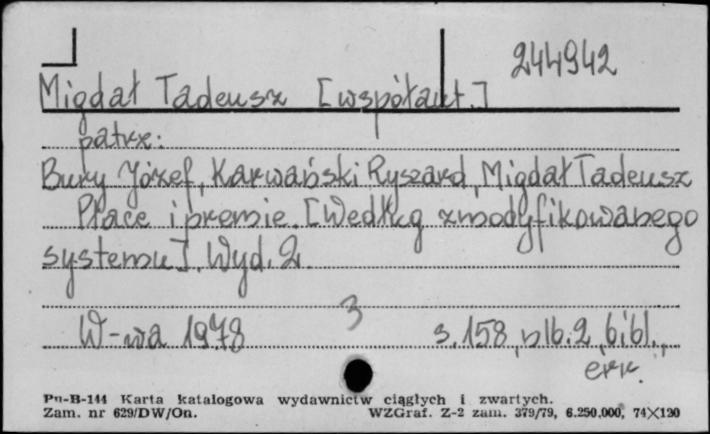 244942
Migdał Tadeusz [współaut.]
patrz:
Bury Józef, Karwański Ryszard, Migdał Tadeusz
Płace i premie. [Według zmodyfikowanego
systemu]. Wyd. 2
3
W-wa 1978 s. 158, nlb. 2, bibl.,
err.
Pu-B-144 Karta katalogowa wydawnictw ciągłych i zwartych.
Zam. nr 629/DW/On. WZGraf. Z-2 zam. 379/79, 6.250,000, 74×120